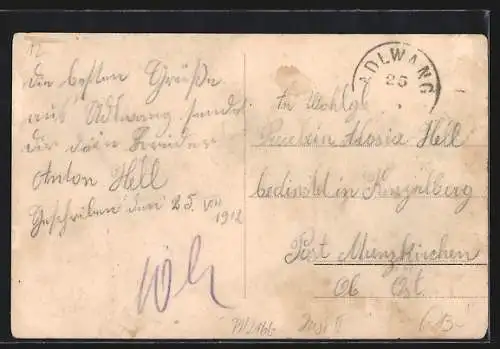 die besten Grüße
aus Adlwang sendet
dir dein Bruder
Anton Hell
Geschrieben den 25. VII
1912
ADLWANG
25
An Wohlge
Fräulein Aloisia Hell
bedinstet in
Post Münzkirchen
Ob Öst.